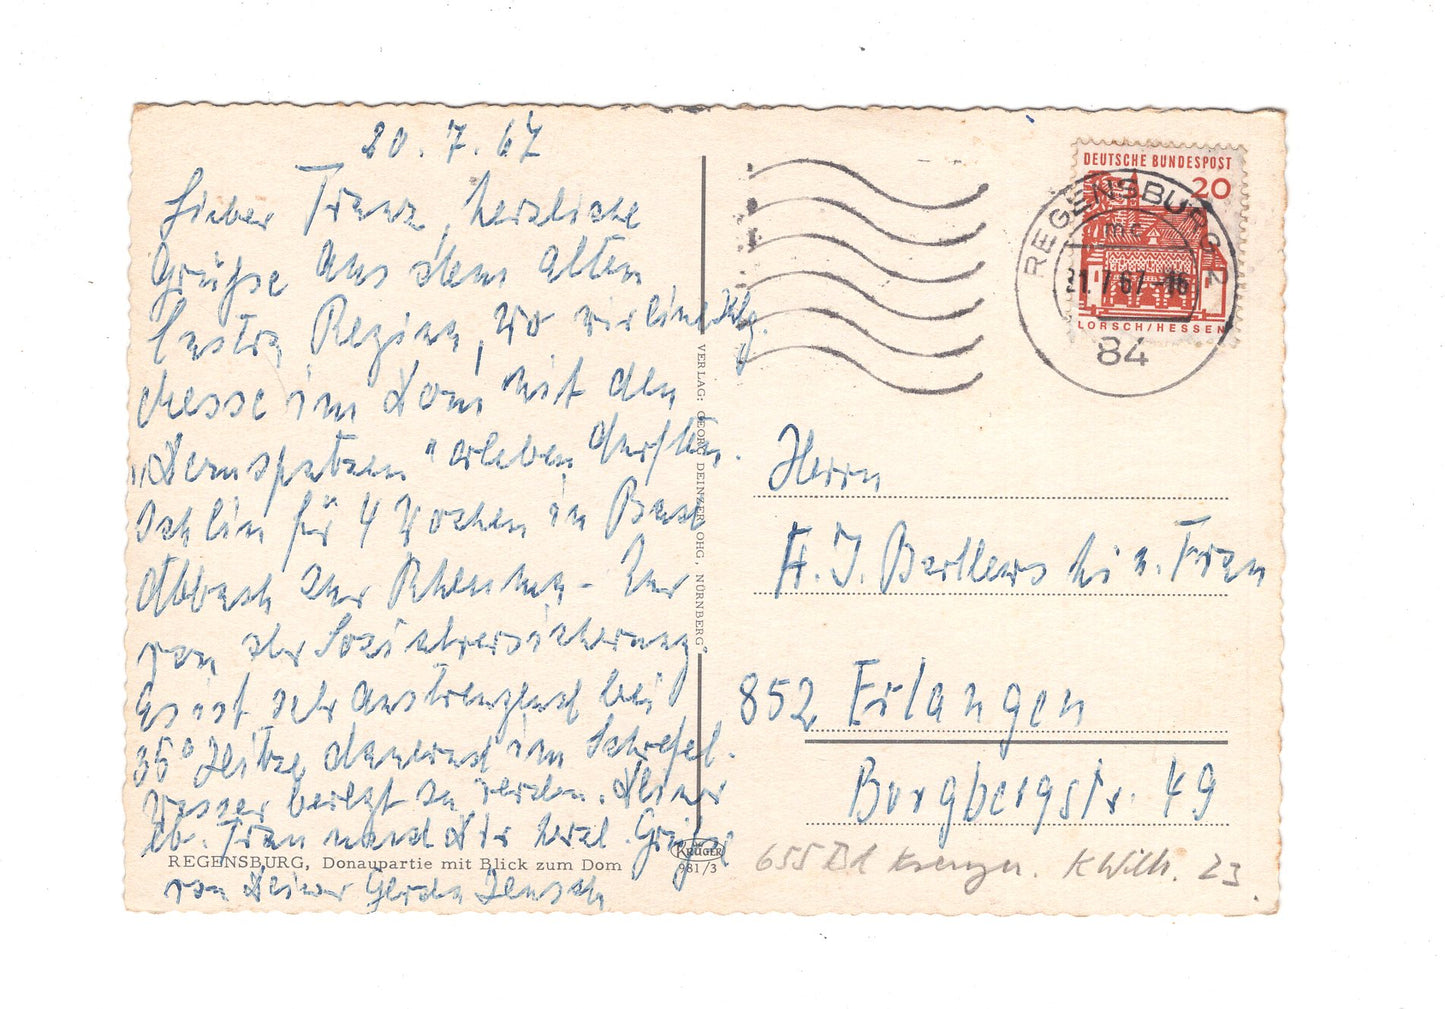 20. 7. 67
Lieber Franz, herzliche
Grüße aus dem alten
Castra Regina, wo wir eine Klg.
Messe im Dom mit den
"Domspatzen" erleben durften.
Ich bin für 4 Wochen in Bad
Abbach zur Rheuma- Kur
von der Sozialversicherung
Es ist sehr anstrengend bei
35° Hitze dauernd im Schwefel-
Wasser bewegt zu werden. Deiner
lb. Frau und Dir herzl. Grüße
von Deiner Gerda
REGENSBURG, Donaupartie mit Blick zum Dom
VERLAG: GEORG DEINZER OHG, NÜRNBERG
KRÜGER
981/3
DEUTSCHE BUNDESPOST
20
LORSCH/HESSEN
REGENSBURG 2
mc
21.7.67-16
84
Herrn
H. J. u. Frau
852 Erlangen
Burgbergstr. 49
655 Bd K Wilh. 23